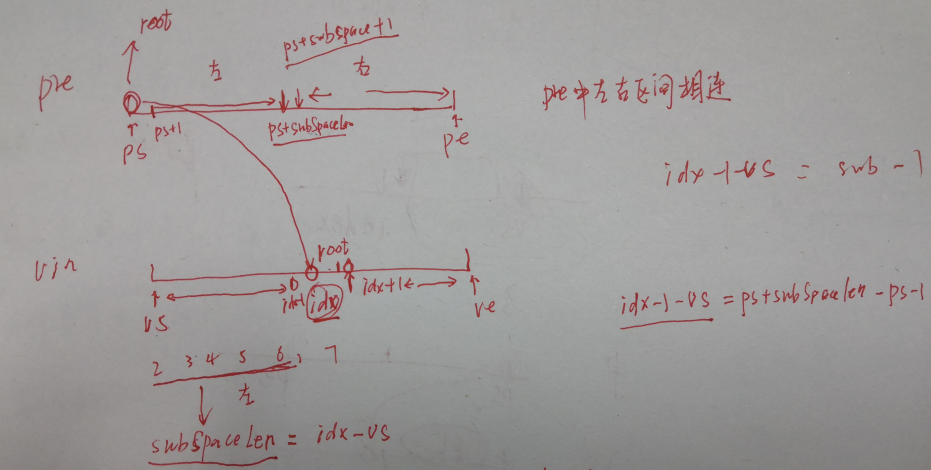 root
ps+subSpace+1
pre 左 右
pre中左右区间相连
ps ps+1 ps+subSpaceLen pe
idx-1-vs = sub-1
root
vin
vs idx-1 idx idx+1 ve
idx-1-vs = ps+subSpaceLen-ps-1
2 3 4 5 6, 7
左
subSpaceLen = idx-vs